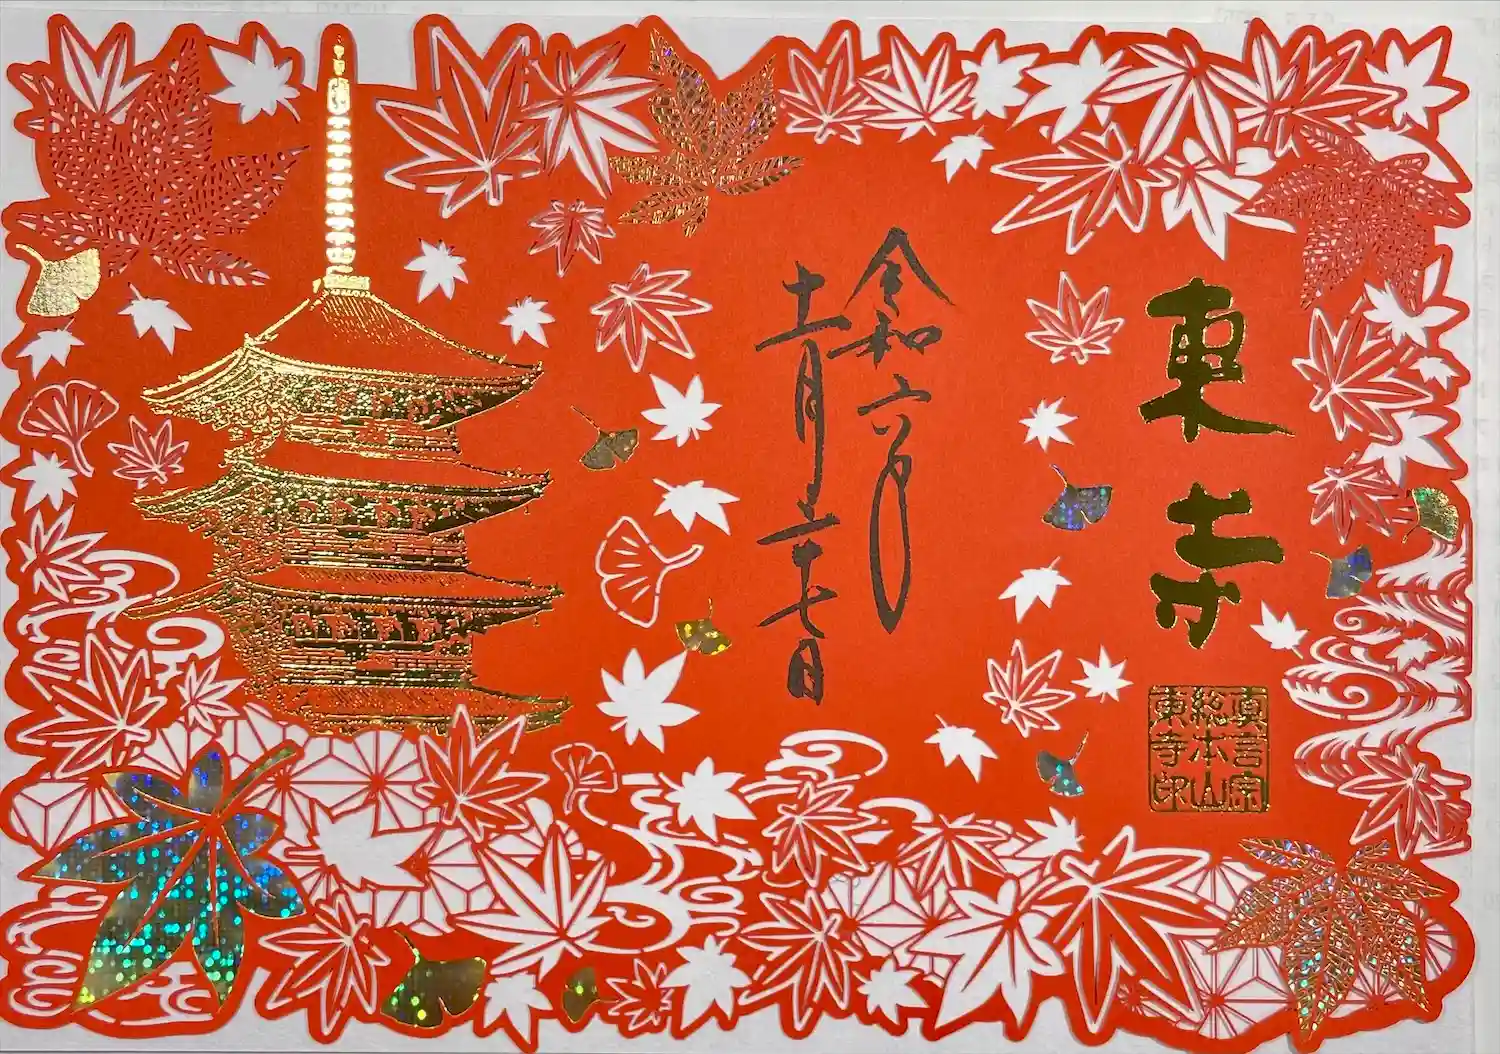 東寺
真言宗
総本山
東寺印
令和六年
十一月二十七日